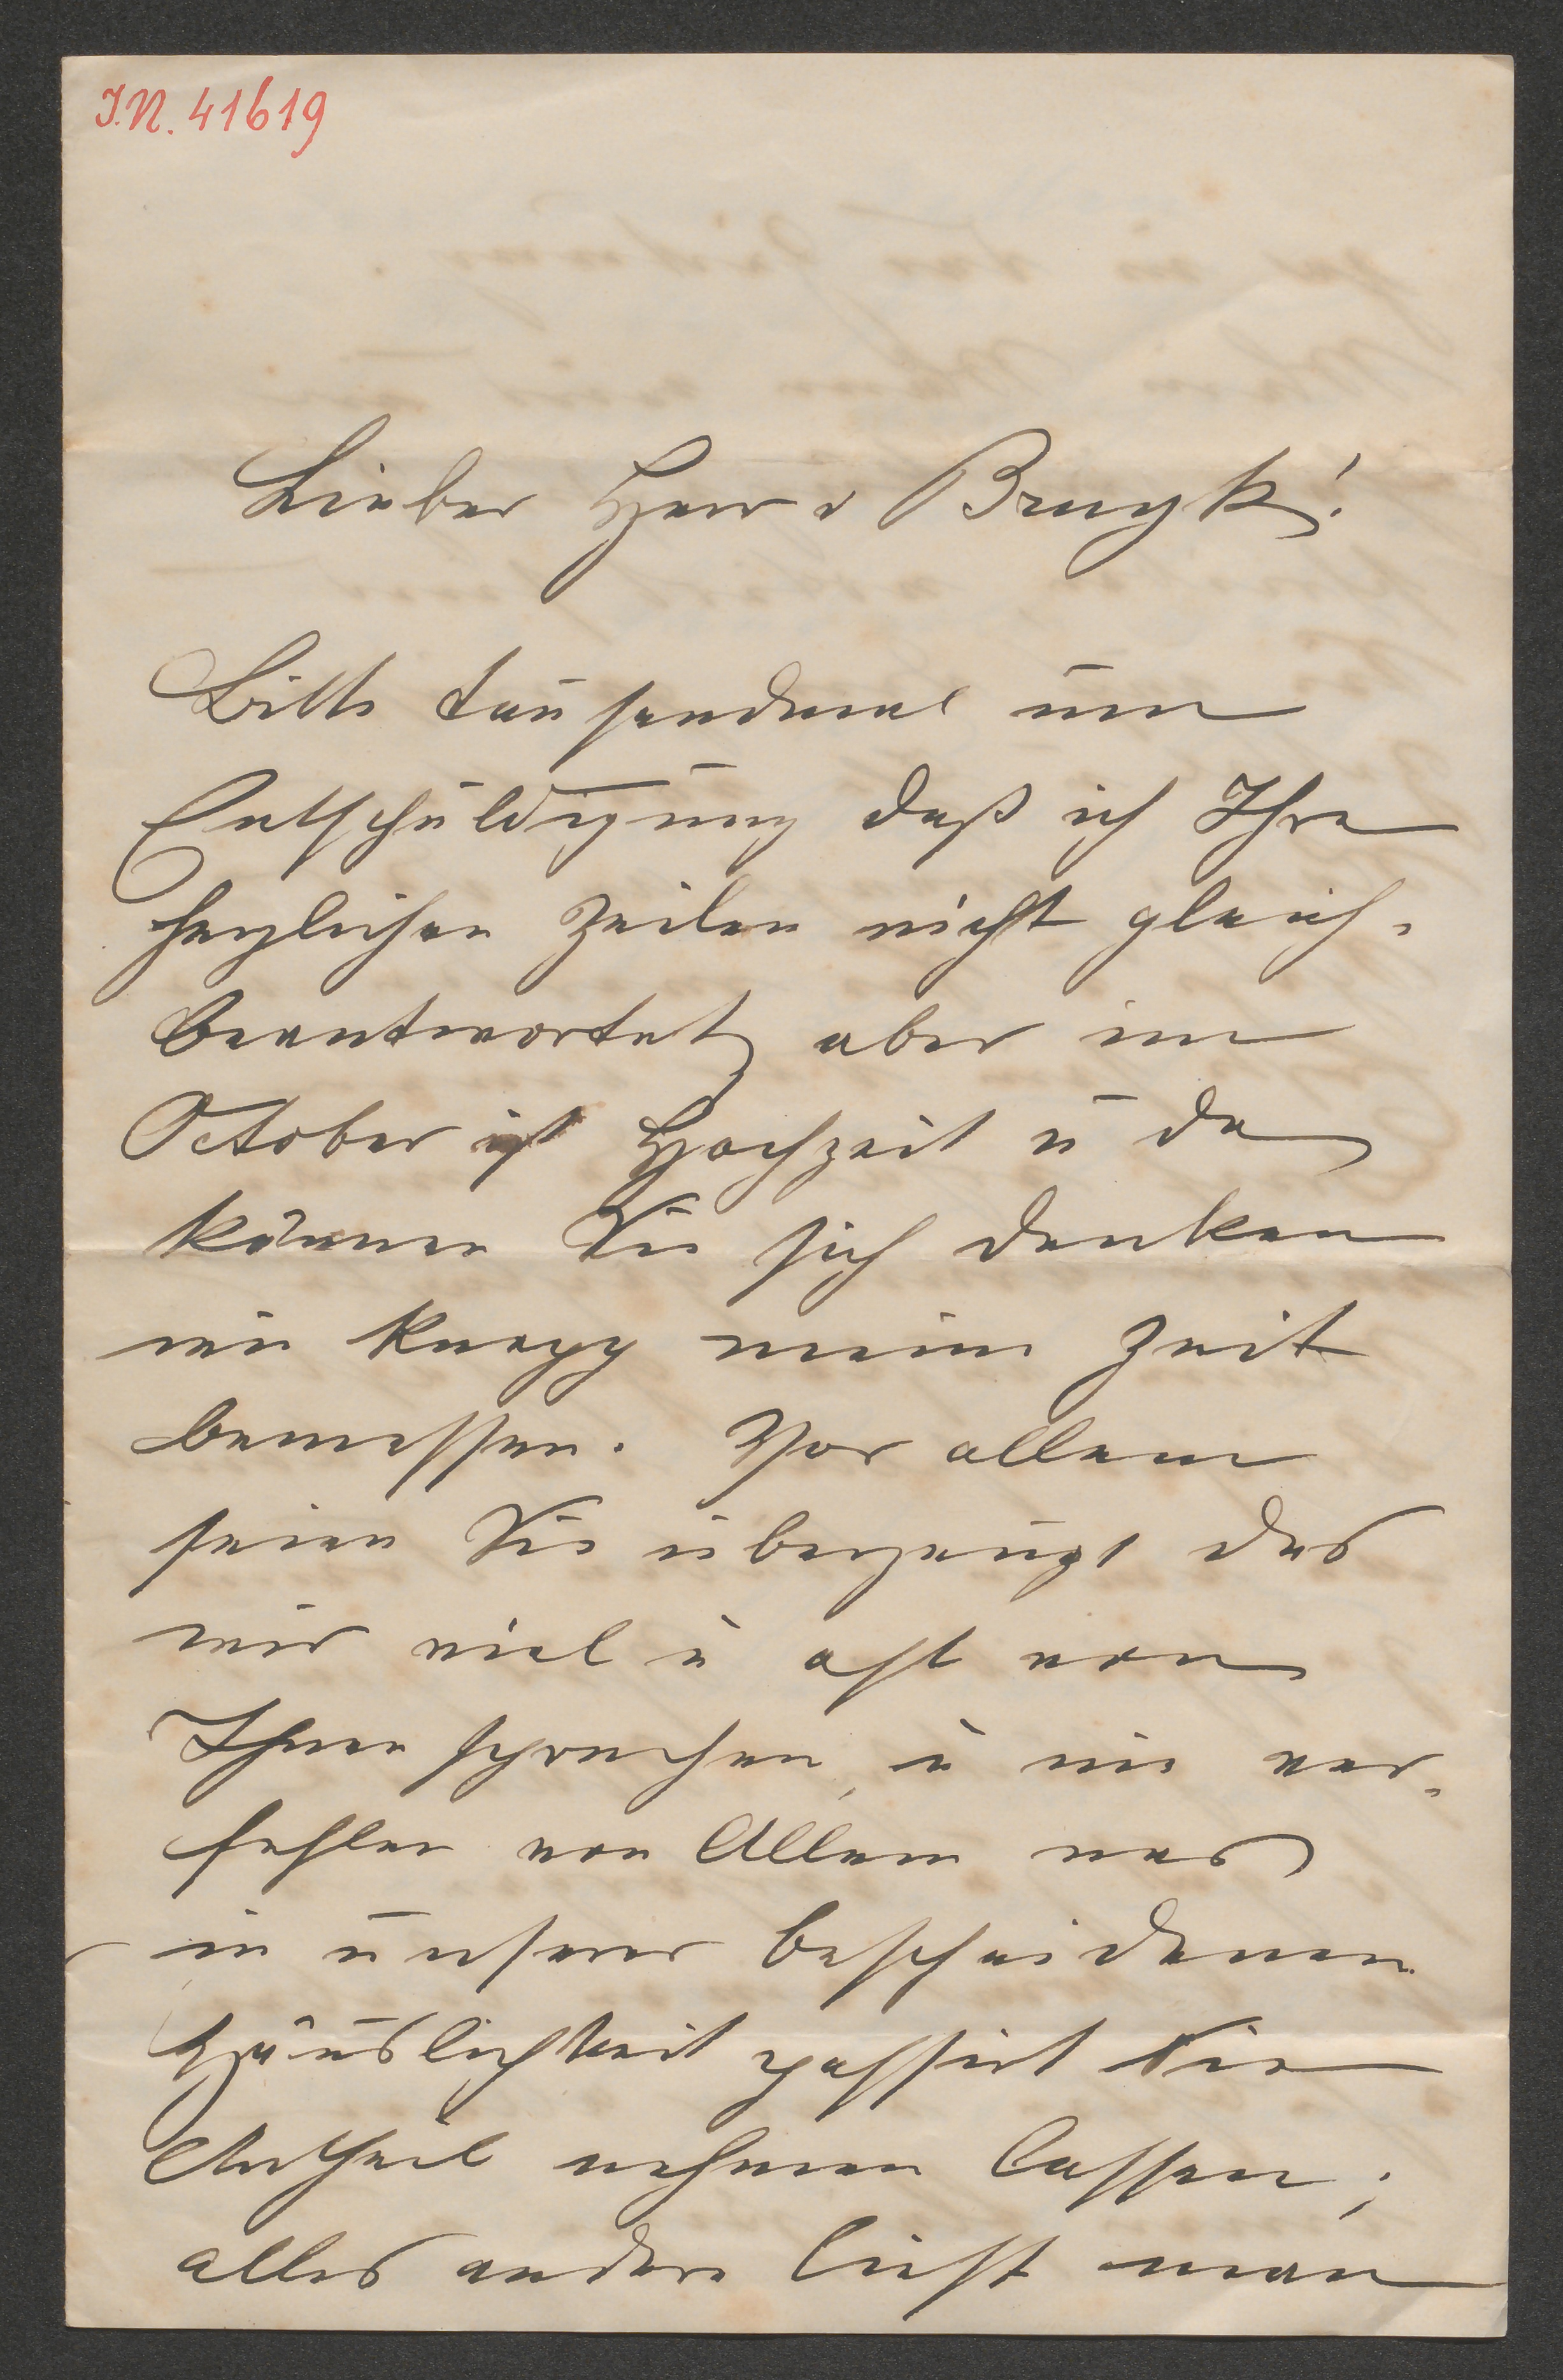 I.N. 41619
Lieber Herr v Bruyk!
Bitte tausendmal um
Entschuldigung daß ich Ihre
herzlichen Zeilen nicht gleich
beantwortet, aber im
October ist Hochzeit u da
können Sie sich denken
wie knapp meine Zeit
bemessen. Vor allem
seien Sie überzeugt das
wir viel u oft von
Ihnen sprechen, u nie ver-
fehlen von Allem was
in unserer bescheidenen
Häuslichkeit passirt Sie
Antheil nehmen lassen;
alles andere liest man